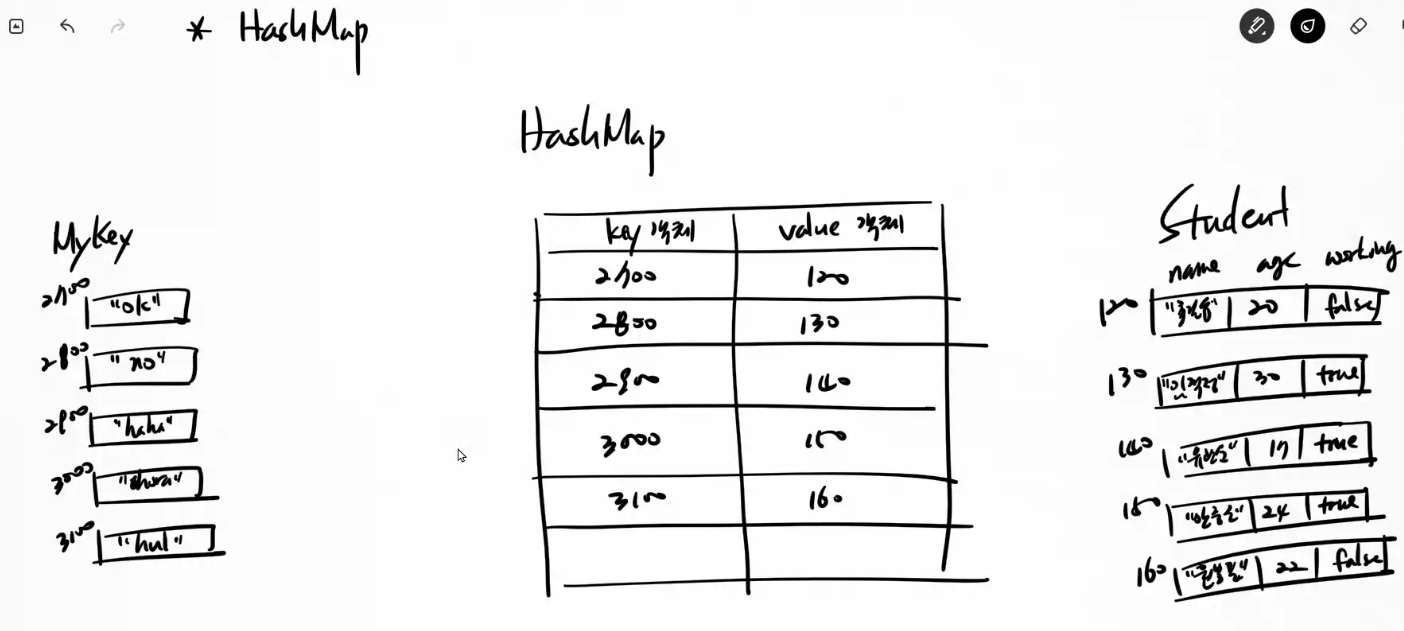 * HashMap
HashMap
MyKey
2700 "ok"
2800 "no"
2900 "haha"
3000 "ohora"
3100 "hul"
key 객체 value 객체
2700 120
2800 130
2900 140
3000 150
3100 160
Student
name age working
120 "홍길동" 20 false
130 "임꺽정" 30 true
140 "유관순" 17 true
150 "안중근" 24 true
160 "윤봉길" 22 false